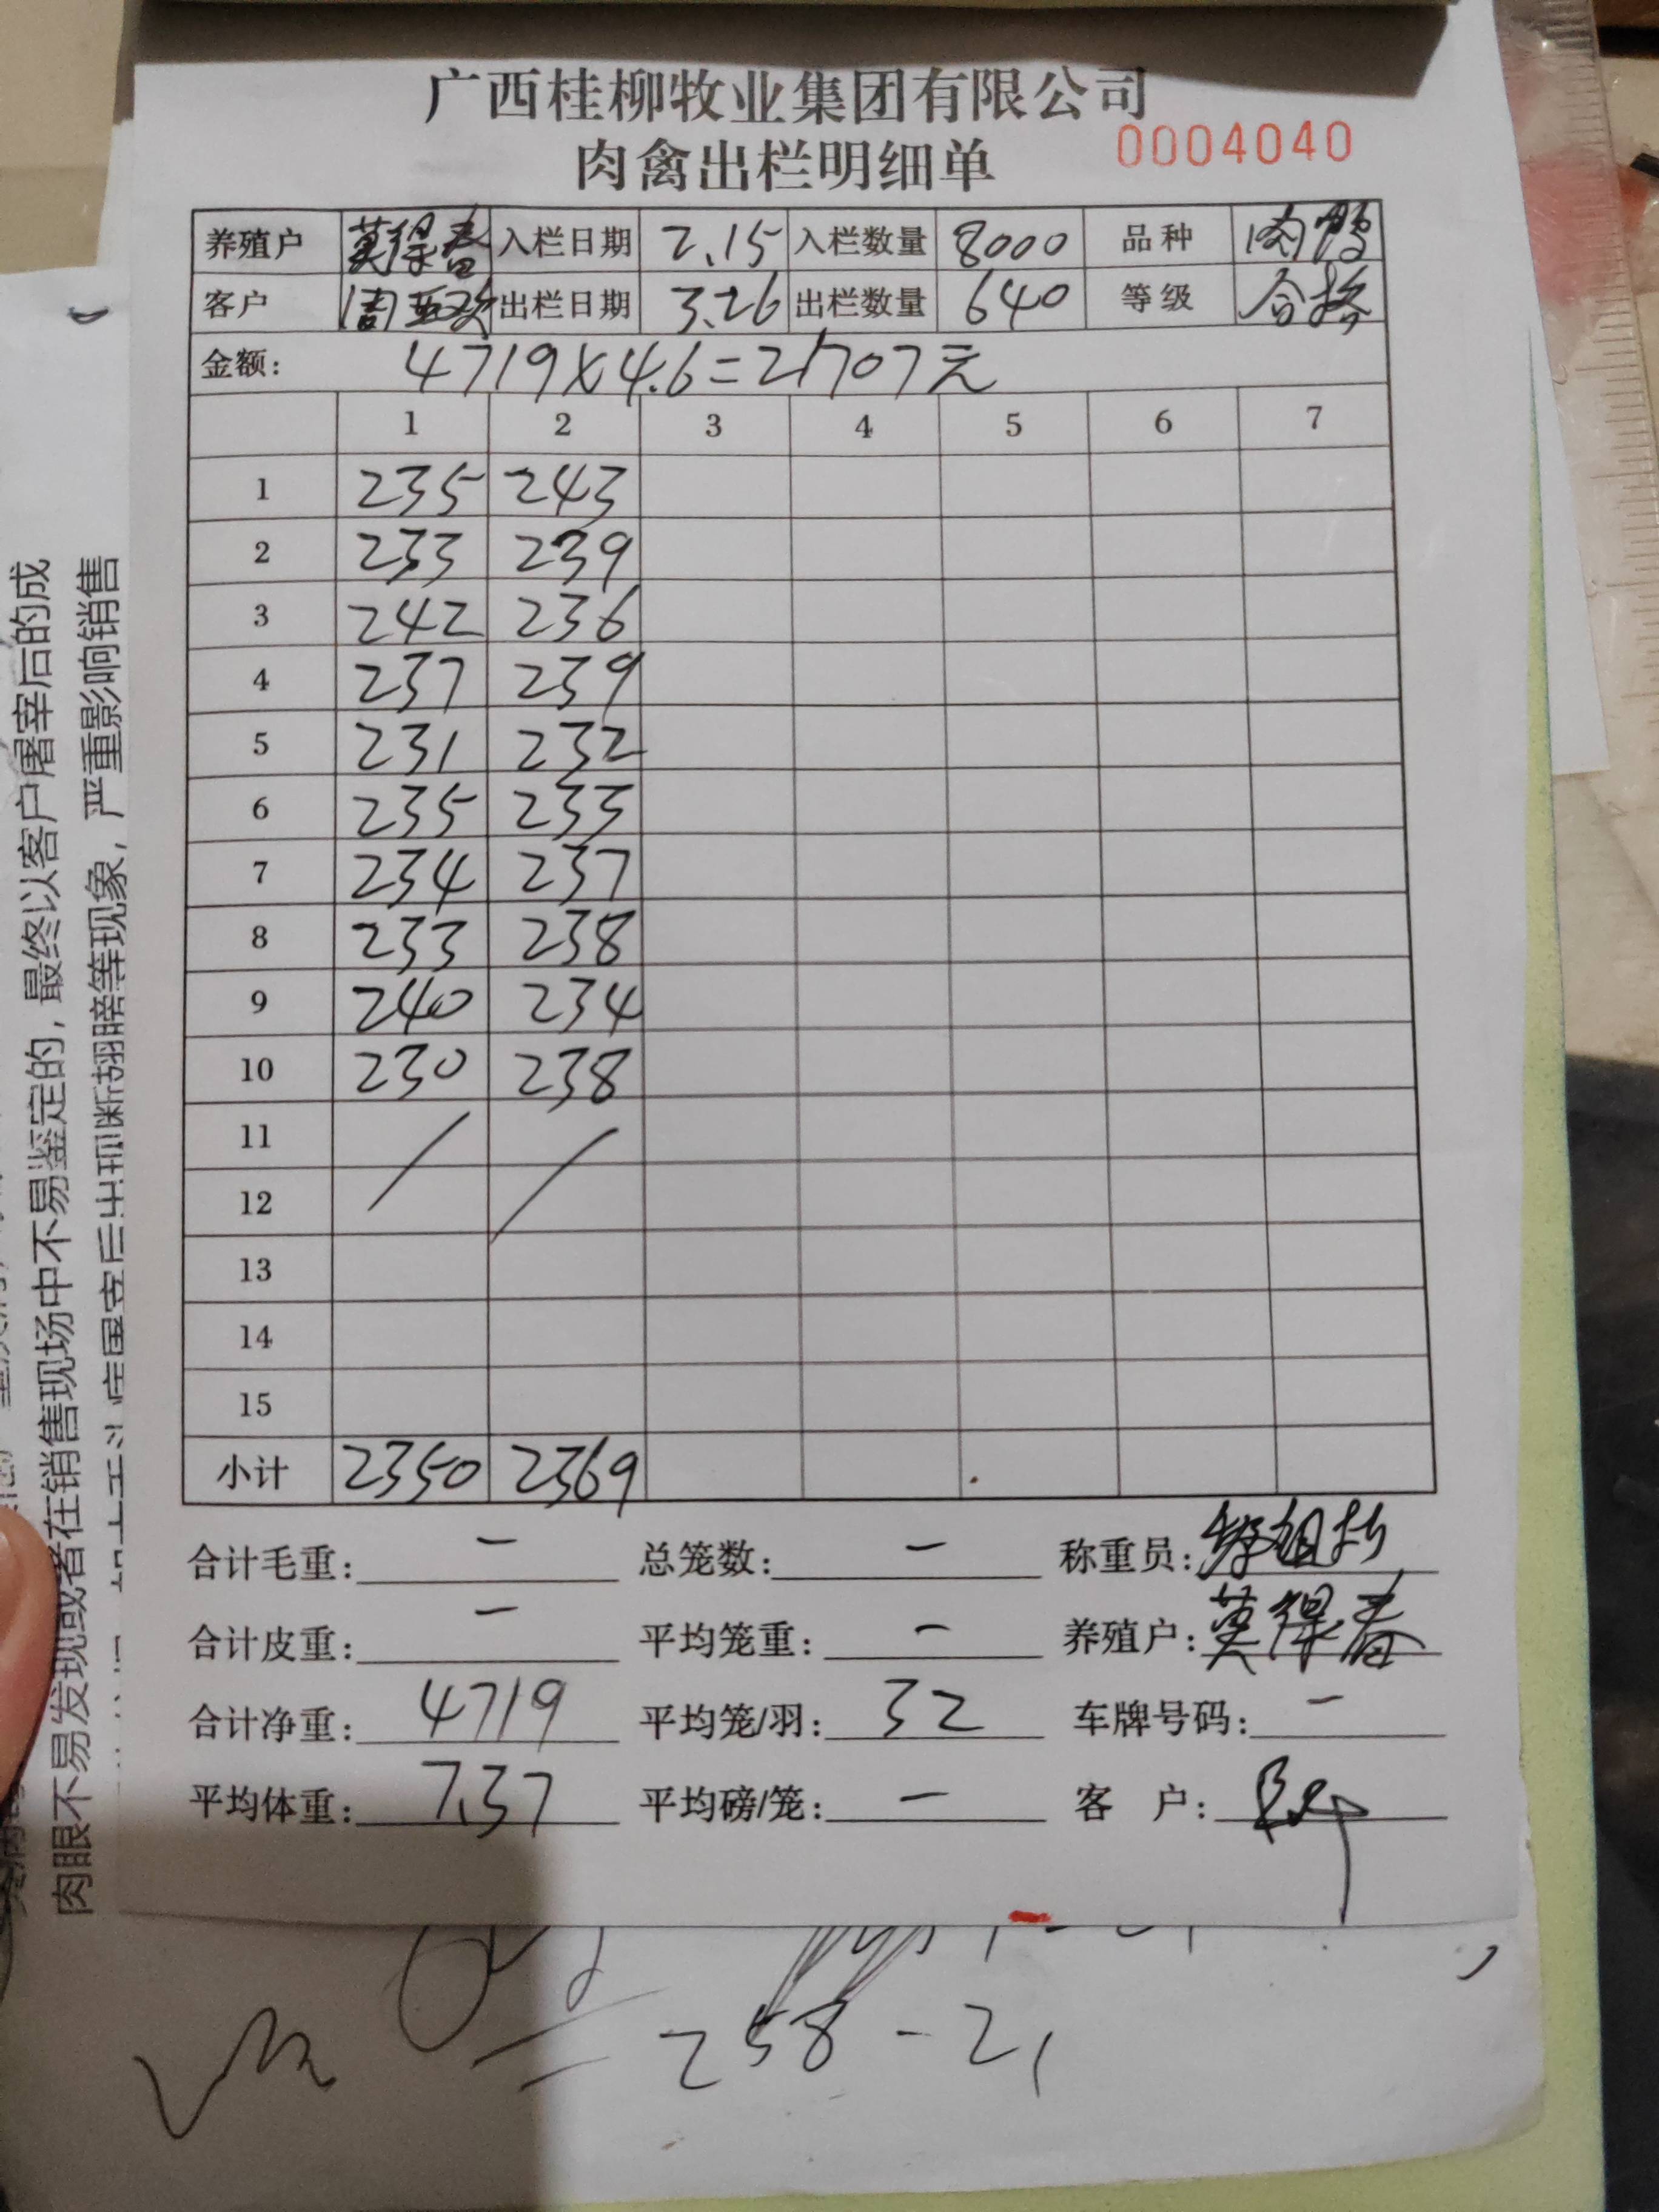 广西桂柳牧业集团有限公司
肉禽出栏明细单 0004040
养殖户 莫保春 入栏日期 2.15 入栏数量 8000 品种 肉鸭
客户 周 出栏日期 3.26 出栏数量 640 等级 合格
金额: 4719×4.6=21707元
1 2 3 4 5 6 7
1 235 243
2 233 239
3 242 236
4 237 239
5 231 232
6 235 233
7 234 237
8 233 238
9 240 234
10 230 238
11
12
13
14
15
小计 2350 2369
合计毛重: — 总笼数: — 称重员:
合计皮重: — 平均笼重: — 养殖户: 莫保春
合计净重: 4719 平均笼/羽: 32 车牌号码: —
平均体重: 7.37 平均磅/笼: — 客 户:
= 258-21
者在销售现场中不易鉴定的, 最终以客户屠宰后的成
肉眼不易发现或
后出现断翅膀等现象, 严重影响销售